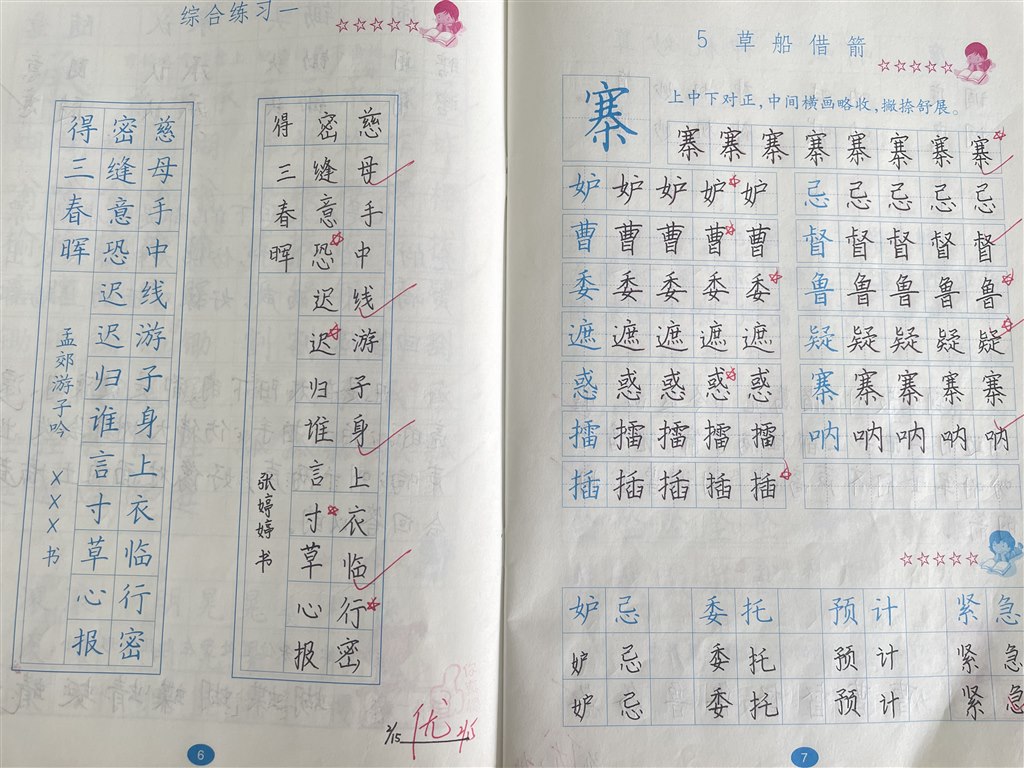 综合练习一
慈母手中线游子身上衣临行密
密缝意恐迟迟归谁言寸草心报
得三春晖
孟郊游子吟 XXX书
慈母手中线游子身上衣临行密
密缝意恐迟迟归谁言寸草心报
得三春晖
张婷婷书
2/15 优 2/15
6
5 草船借箭
寨
上中下对正,中间横画略收,撇捺舒展。
寨寨寨寨寨寨寨寨
妒妒妒妒妒 忌忌忌忌忌
曹曹曹曹曹 督督督督督
委委委委委 鲁鲁鲁鲁鲁
遮遮遮遮遮 疑疑疑疑疑
惑惑惑惑惑 寨寨寨寨寨
擂擂擂擂擂 呐呐呐呐呐
插插插插插
妒忌 委托 预计 紧急
妒忌 委托 预计 紧急
妒忌 委托 预计 紧急
7